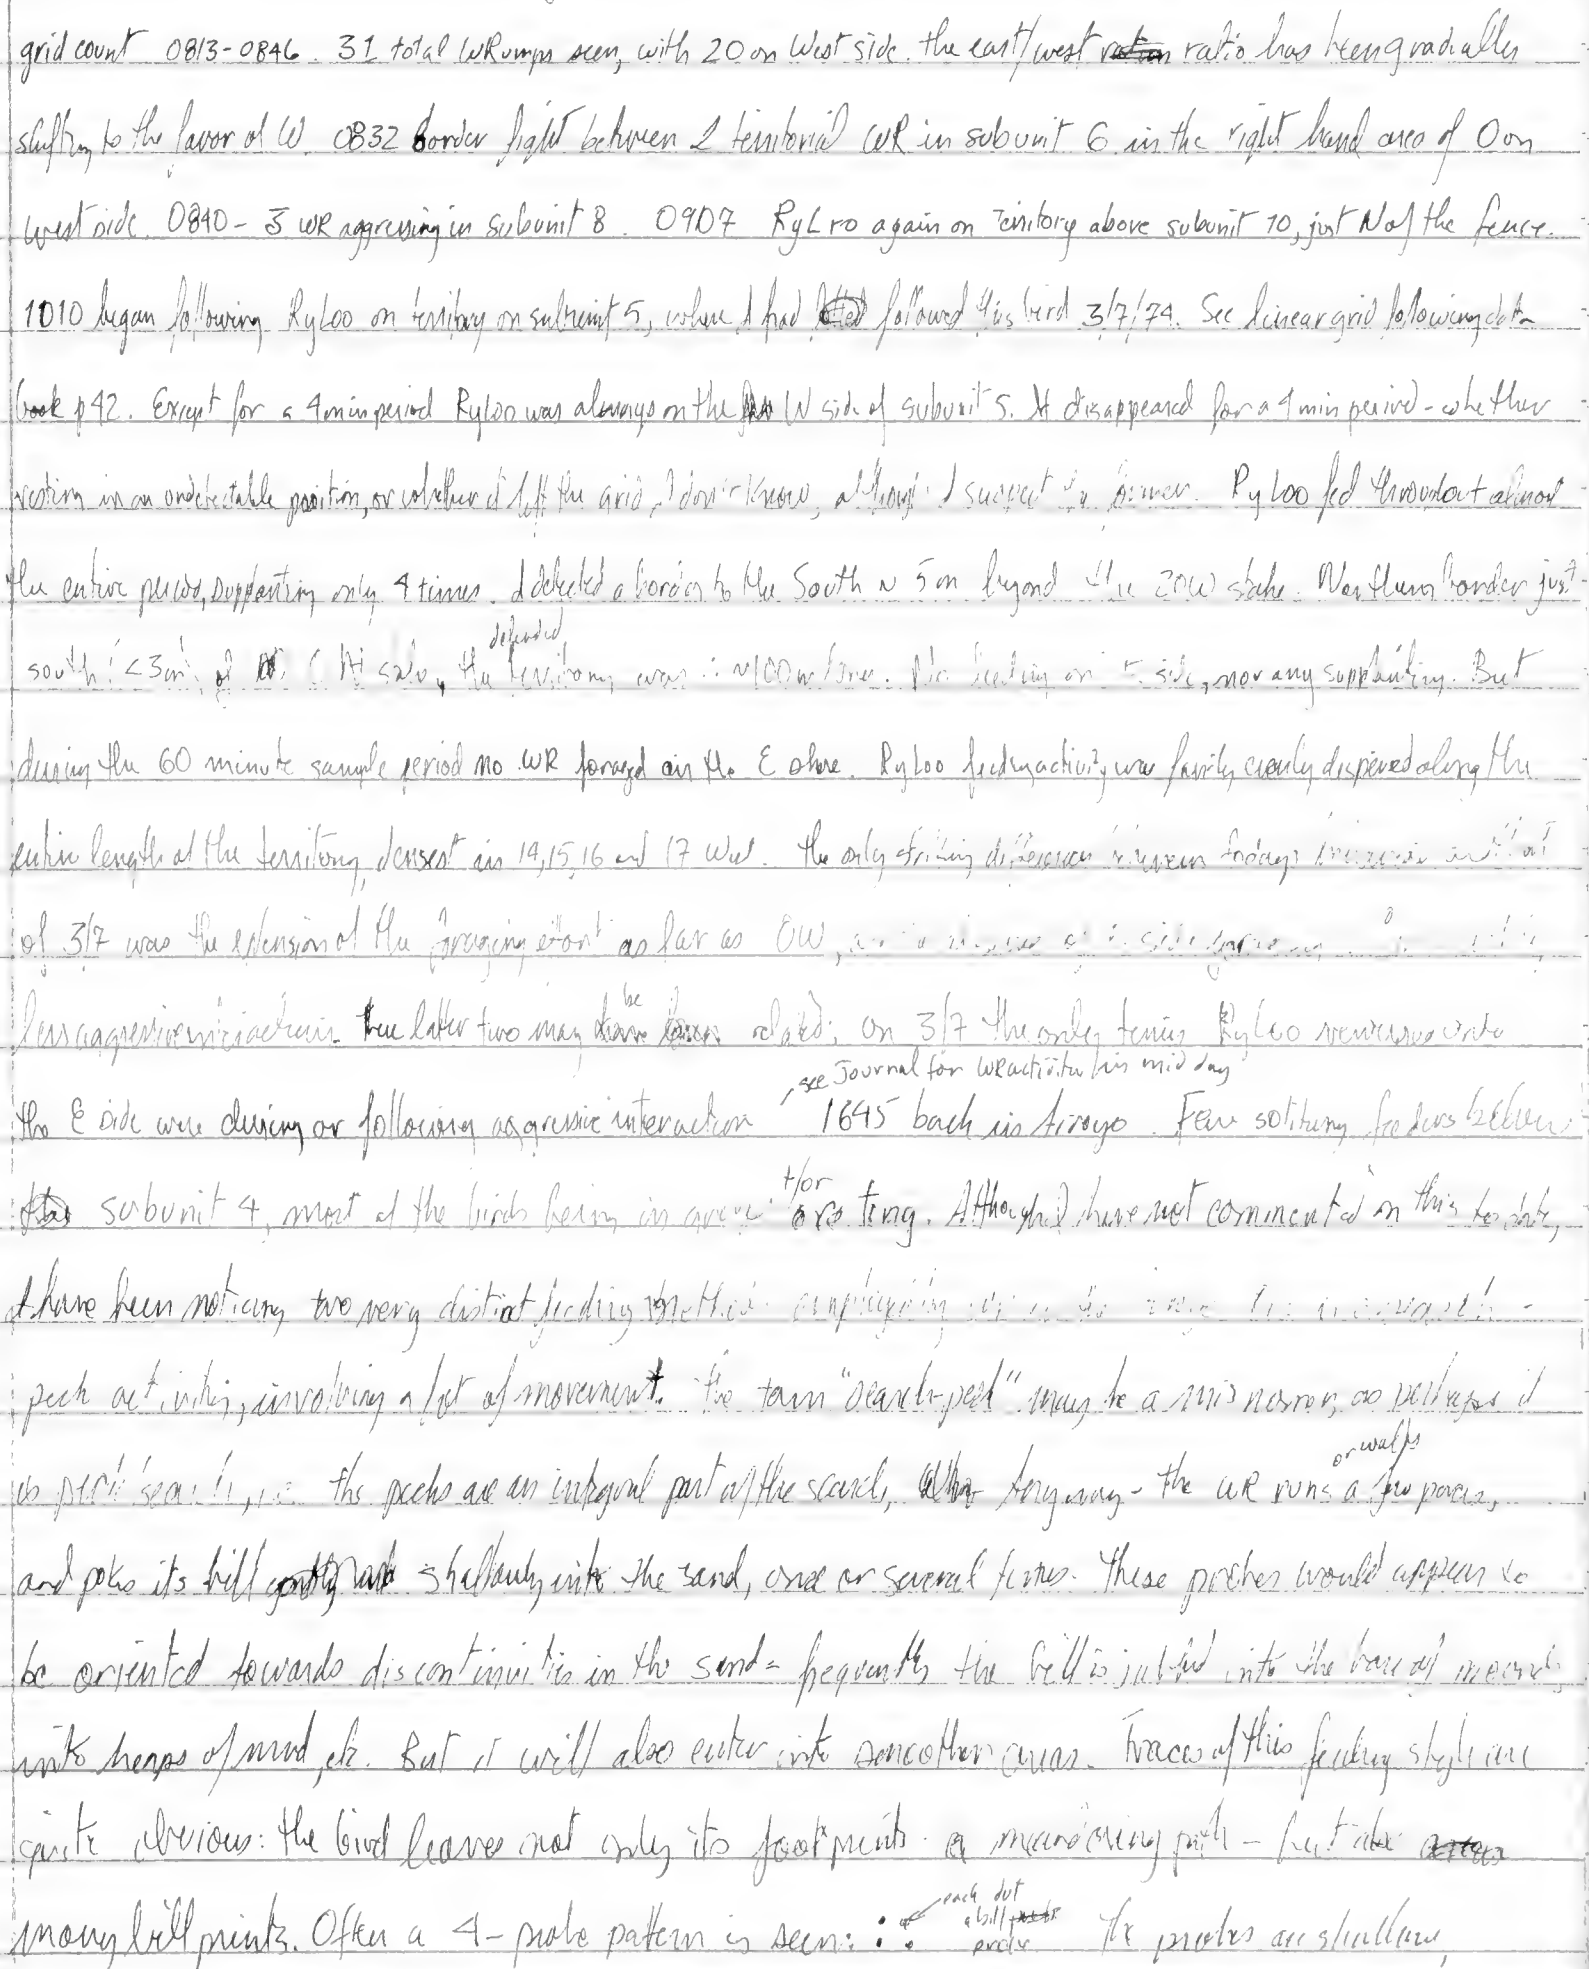 grid count 0813-0846. 31 total WRumps seen, with 20 on West side. the east/west ratio has been gradually
shifting to the favor of W. 0832 border fight between 2 territorial WR in subunit 6 in the right hand area of 0 on
west side. 0840 - 3 WR aggressing in subunit 8. 0907 RyLro again on Territory above subunit 10, just N of the fence.
1010 began following RyLoo on territory on subunit 5, where I had followed this bird 3/7/74. See linear grid following data
book p42. Except for a 4 min period RyLoo was always on the W side of subunit 5. It disappeared for a 4 min period - whether
resting in an undetectable position, or whether it left the grid, I don't know, although I suspect the former. RyLoo fed throughout almost
the entire period, supplanting only 4 times. I detected a border to the South ~ 5m beyond the 20W stake. Northern border just
south (<3m) of the defended territory was ∴ ~100m long. No feeding on E side, nor any supplanting. But
during the 60 minute sample period no WR foraged on the E shore. RyLoo feeding activity was fairly evenly dispersed along the
entire length of the territory, densest in 14, 15, 16 and 17 West. The only striking difference between today's and that
of 3/7 was the extension of the foraging effort as far as 0W,
less aggressive interaction. The latter two may be related; on 3/7 the only times RyLoo onto
the E side were during or following aggressive interaction, see Journal for WR activities in mid day 1645 back in Arroyo. Few solitary feeders below
subunit 4, most of the birds being in +/or resting. Although I have not commented on this to date,
I have been noticing two very distinct feeding methods
peck activity, involving a lot of movement. The term "search-peck" may be a misnomer, as perhaps it
is peck search, i.e. the pecks are an integral part of the search. Anyway - the WR runs or walks a few paces,
and pokes its bill shallowly into the sand, once or several times. These probes would appear to
be oriented towards discontinuities in the sand - frequently the bill is jabbed into the base of mounds,
into heaps of mud, etc. But it will also enter into smoother areas. Traces of this feeding style are
quite obvious: the bird leaves not only its footprints - a meandering path - but also
many bill prints. Often a 4-probe pattern is seen: each dot a bill probe The probes are shallow,